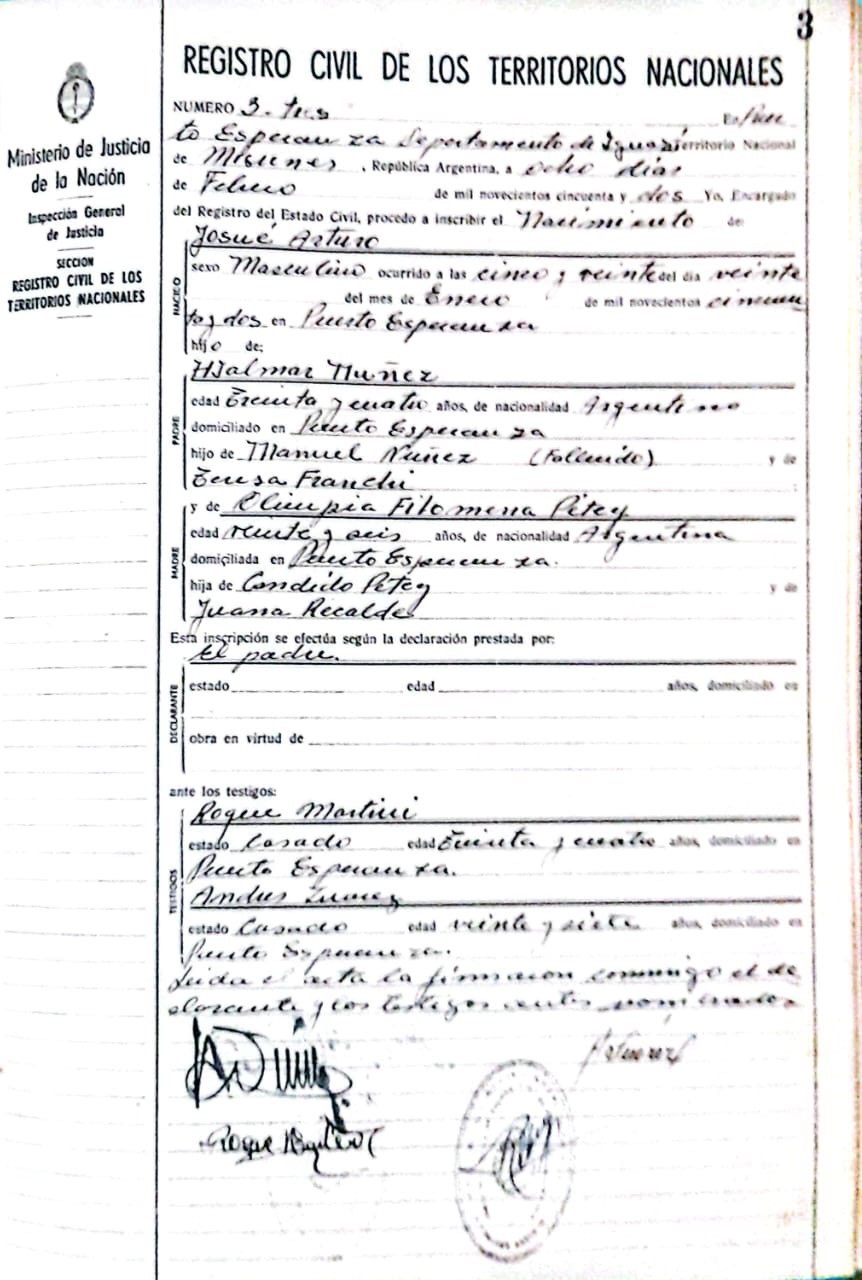 3
REGISTRO CIVIL DE LOS TERRITORIOS NACIONALES
Ministerio de Justicia
de la Nación
Inspección General
de Justicia
SECCION
REGISTRO CIVIL DE LOS
TERRITORIOS NACIONALES
NUMERO 3. tres En Puer
to Esperanza Departamento de Iguazú Territorio Nacional
de Misiones, República Argentina, a ocho días
de Febrero de mil novecientos cincuenta y dos Yo, Encargado
del Registro del Estado Civil, procedo a inscribir el Nacimiento de
NACIDO
Josué Arturo
sexo Masculino ocurrido a las cinco y veinte del día veinte
del mes de Enero de mil novecientos cincuen
ta y dos en Puerto Esperanza
hijo de:
PADRE
Hjalmar Nuñez
edad Treinta y cuatro años, de nacionalidad Argentino
domiciliado en Puerto Esperanza
hijo de Manuel Nuñez (Fallecido) y de
Teresa Franchi
MADRE
y de Olimpia Filomena Petey
edad veinte y seis años, de nacionalidad Argentina
domiciliada en Puerto Esperanza.
hija de Candido Petey y de
Juana Recalde
Esta inscripción se efectúa según la declaración prestada por:
El padre.
DECLARANTE
estado edad años, domiciliado en
obra en virtud de
ante los testigos:
TESTIGOS
Roque Martini
estado Casado edad Treinta y cuatro años, domiciliado en
Puerto Esperanza.
Andres Suarez
estado Casado edad veinte y siete años, domiciliado en
Puerto Esperanza.
Leida el acta la firmaron conmigo el de
clarante y los testigos antes nombrados
Roque